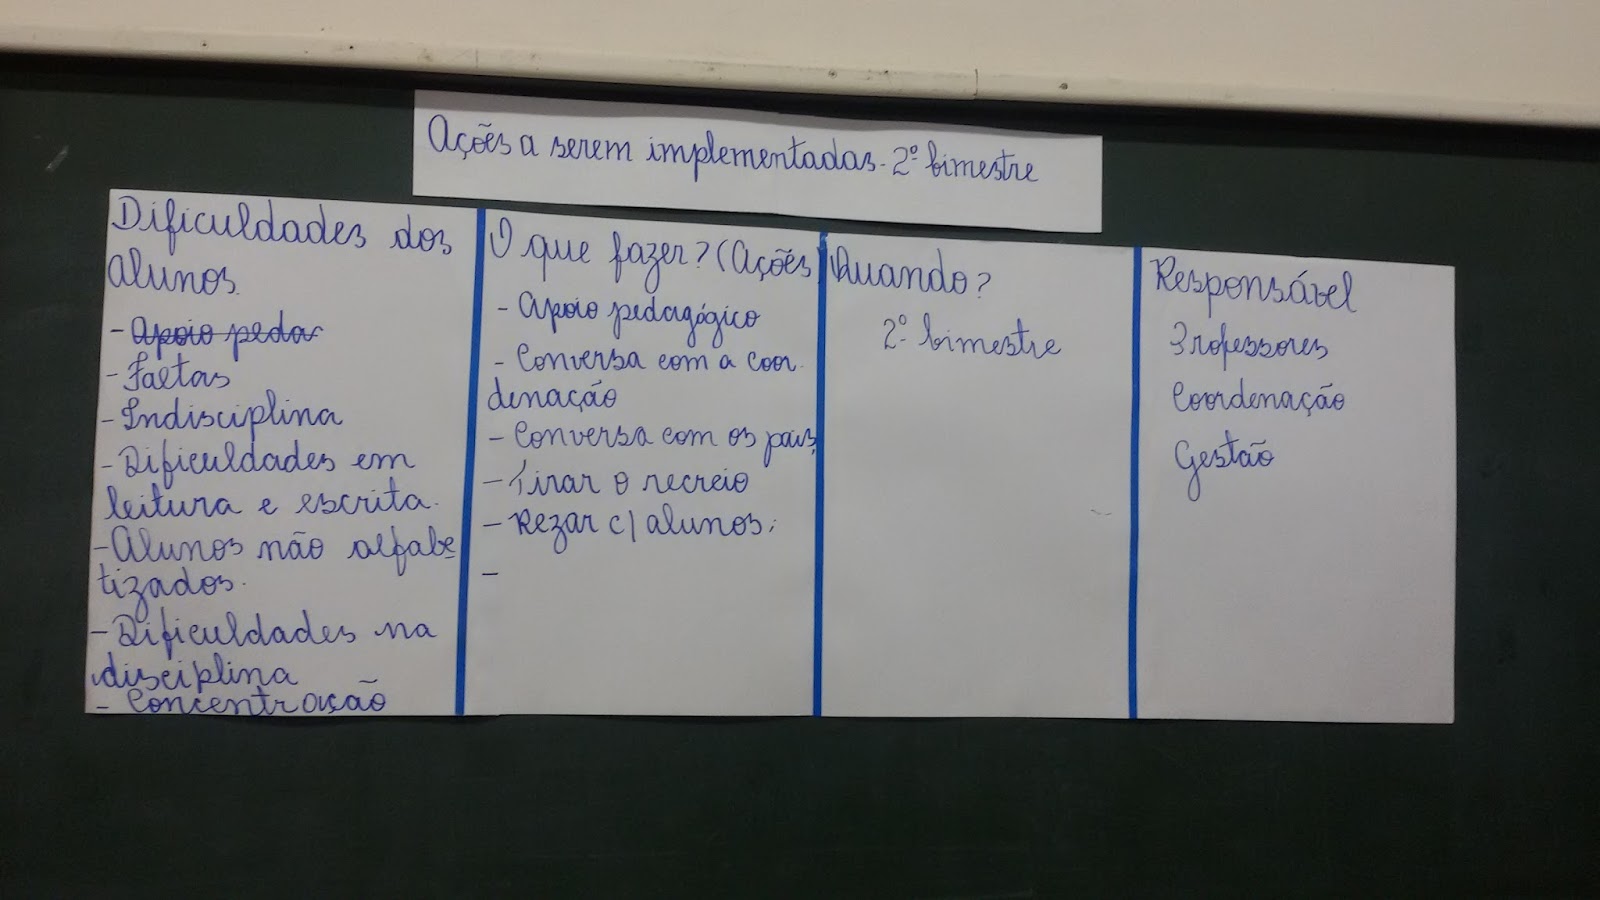 Ações a serem implementadas - 2º bimestre
Dificuldades dos
alunos.
- Apoio peda
- Faltas
- Indisciplina
- Dificuldades em
leitura e escrita.
- Alunos não alfabe-
tizados.
- Dificuldades na
disciplina
- Concentração
O que fazer? (Ações)
- Apoio pedagógico
- Conversa com a coor-
denação
- Conversa com os pais;
- Tirar o recreio
- Rezar c/ alunos;
-
Quando?
2º bimestre
Responsável
Professores
Coordenação
Gestão